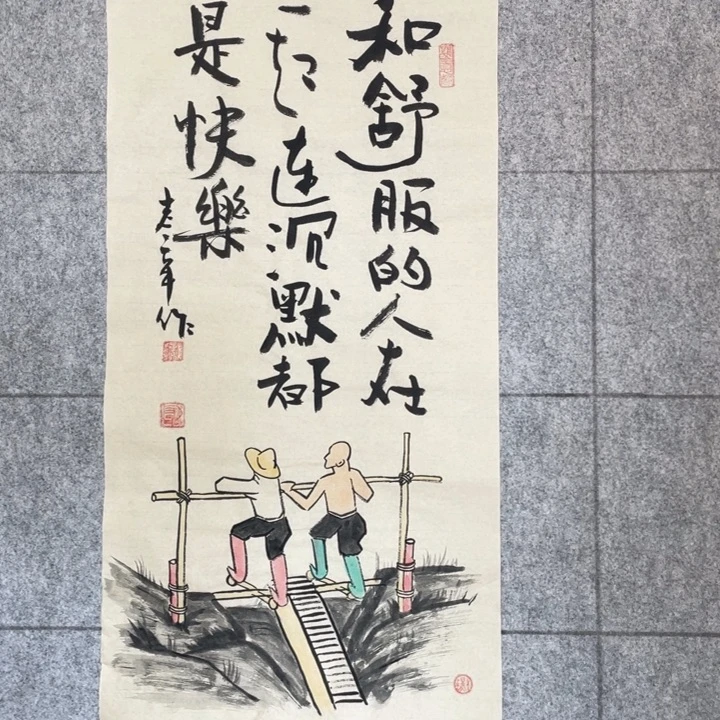 和舒服的人在
一起连沉默都
是快樂
老辛作